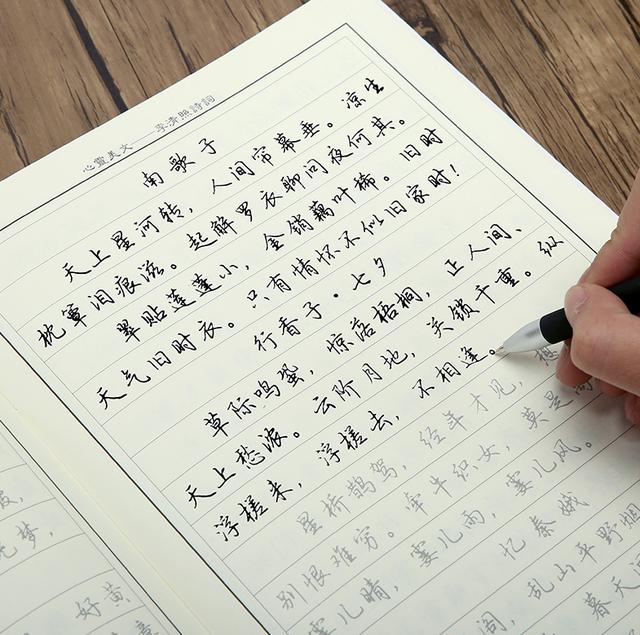 心靈美文 李清照詩詞
南歌子
天上星河转，人间帘幕垂。凉生
枕簟泪痕滋。起解罗衣聊问夜何其。
翠贴莲蓬小，金销藕叶稀。旧时
天气旧时衣。只有情怀不似旧家时！
行香子·七夕
草际鸣蛩，惊落梧桐，正人间、
天上愁浓。云阶月地，关锁千重。纵
浮槎来，浮槎去，不相逢。
星桥鹊驾，经年才见，想
别恨难穷。牵牛织女，莫是离
霎儿晴，霎儿雨，霎儿风。
忆秦娥
阁，乱山平野烟
暮天
梦，
好黄